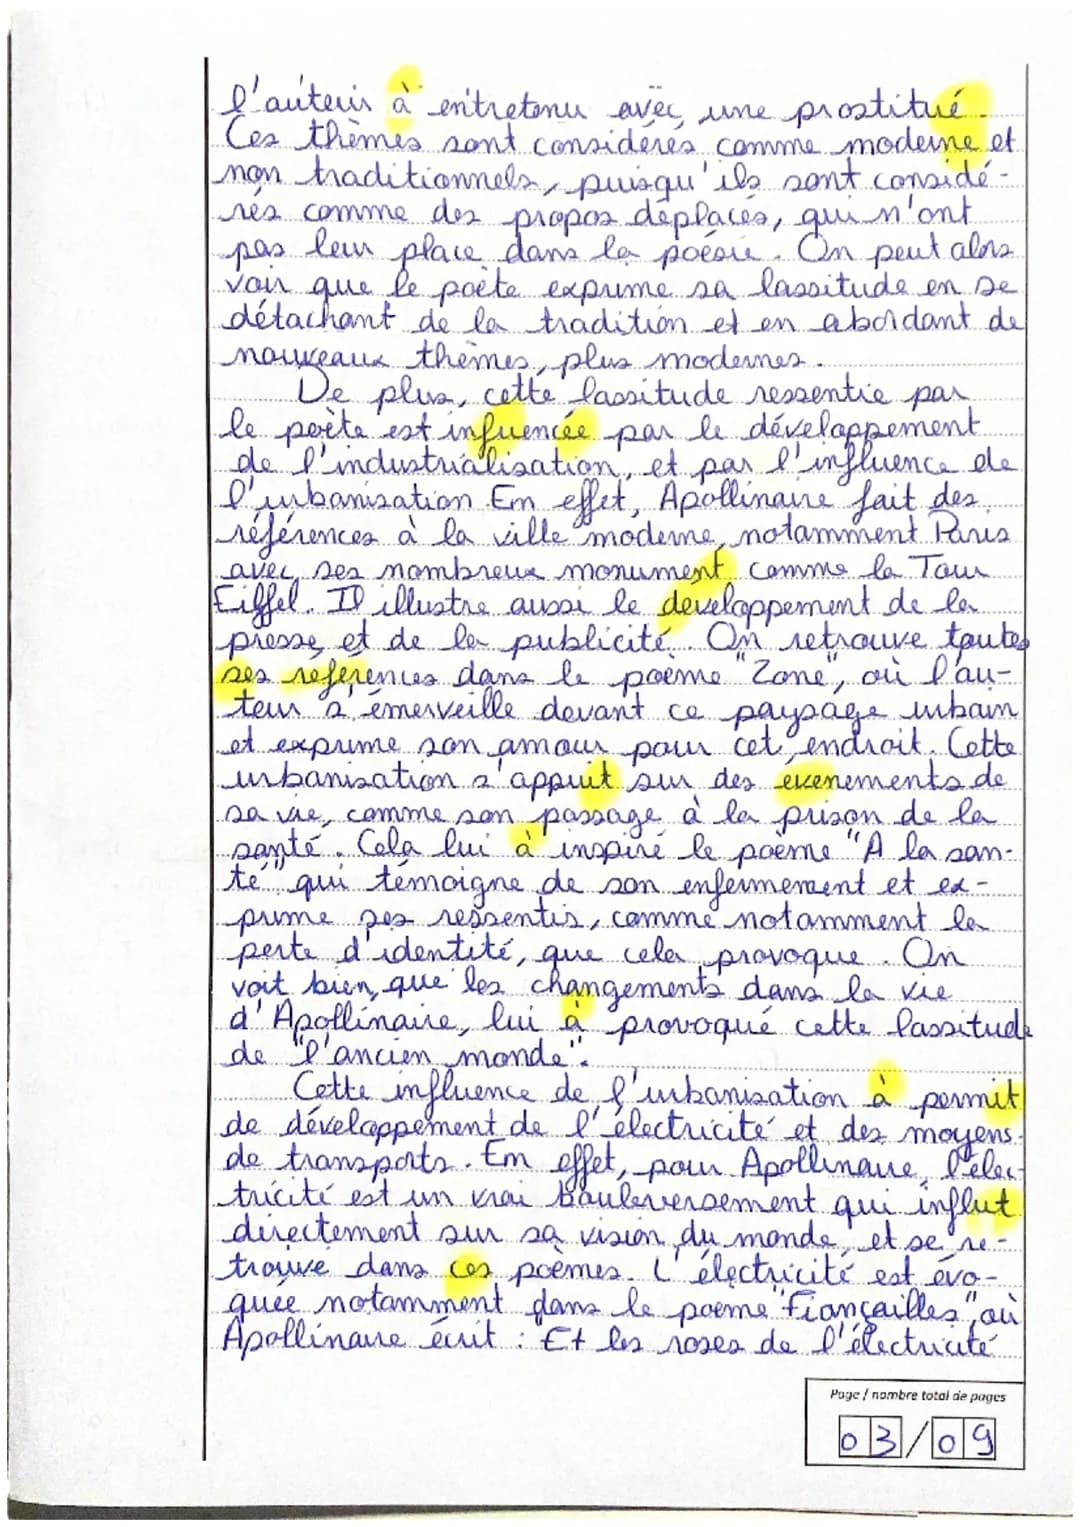 l'auteur à entretenu avec une prostitué.
Ces thèmes sont considérés comme moderne et
non traditionnels, puisqu'ils sont considé-
rés comme des propos déplacés, qui n'ont
pas leur place dans la poésie. On peut alors
voir que le poète exprime sa lassitude en se
détachant de la tradition et en abordant de
nouveaux thèmes, plus modernes.
De plus, cette lassitude ressentie par
le poète est infuencée par le développement
de l'industrialisation, et par l'influence de
l'urbanisation. En effet, Apollinaire fait des
références à la ville moderne, notamment Paris
avec ses nombreux monument comme la Tour
Eiffel. Il illustre aussi le developpement de la
presse et de la publicité. On retrouve toutes
ses références dans le poème "Zone", où l'au-
teur s'émerveille devant ce paysage urbain
et exprime son amour pour cet endroit. Cette
urbanisation s'appuit sur des évenements de
sa vie, comme son passage à la prison de la
santé. Cela lui à inspiré le poème "A la san-
té" qui témoigne de son enfermement et ex-
prime ses ressentis, comme notamment la
perte d'identité, que cela provoque. On
voit bien, que les changements dans la vie
d'Apollinaire, lui à provoqué cette lassitude
de "l'ancien monde".
Cette influence de l'urbanisation à permit
de développement de l'électricité et des moyens
de transports. En effet, pour Apollinaire, l'élec-
tricité est un vrai bouleversement qui influt
directement sur sa vision du monde, et se re-
trouve dans ces poèmes. L'électricité est évo-
quée notamment dans le poème "Fiançailles", où
Apollinaire écrit : Et les roses de l'électricité
Page / nombre total de pages
03/09